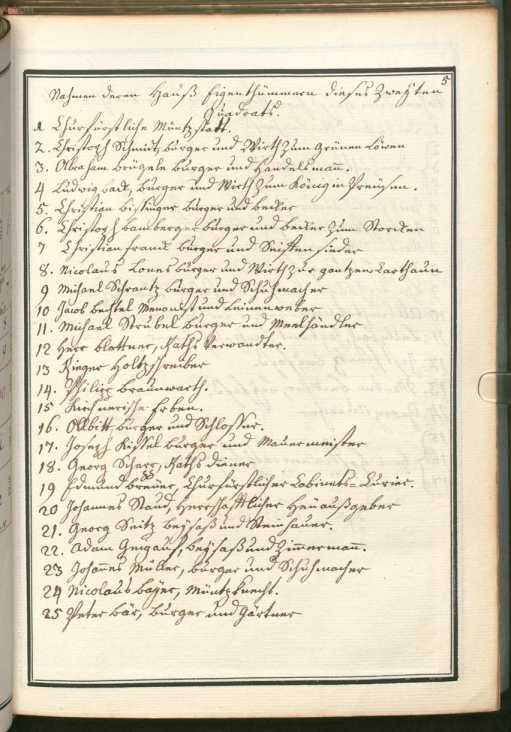 5
Nahmen deren Hauß Eigenthümmern dieses Zweÿten
Quadrats.
1 Churfürstliche Müntzstatt.
2. Christoph Schmidt, burger und Wirth zum grünen Löwen
3. Abraham bürger und Handelsmann.
4 Ludwig burger und Wirth zum König in Preüsen.
5. Christian burger und becker
6. Christoph bamberger burger und becker zum Storcken
7 Christian Franck burger und Seiffensieder
8. Nicolaus burger und Wirth zur
9 Michael Schrantz burger und Schuhmacher
10 Jacob bechtel Menonist und Leinenweber
11. Michael Strubel burger und Meelhändler
12 Herr blattner, Raths Verwandter.
13 Rieger Holtzschreiber
14. Philipp braunwarth.
15 Erben.
16. burger und Schlosser.
17. Joseph Kissel burger und Mauermeister
18. Georg Scherr, Raths diener
19 Edmund Churfürstlicher Cabinets-Curier.
20 Johannes Staud, Herrschafftlicher Heüaußgeber
21. Georg beÿsaß und Steinhauer.
22. Adam beÿsaß und Zimmermann.
23 Johannes Müller, burger und Schuhmacher
24 Nicolaus baÿer, Müntzknecht.
25 Peter bär, burger und Gärtner